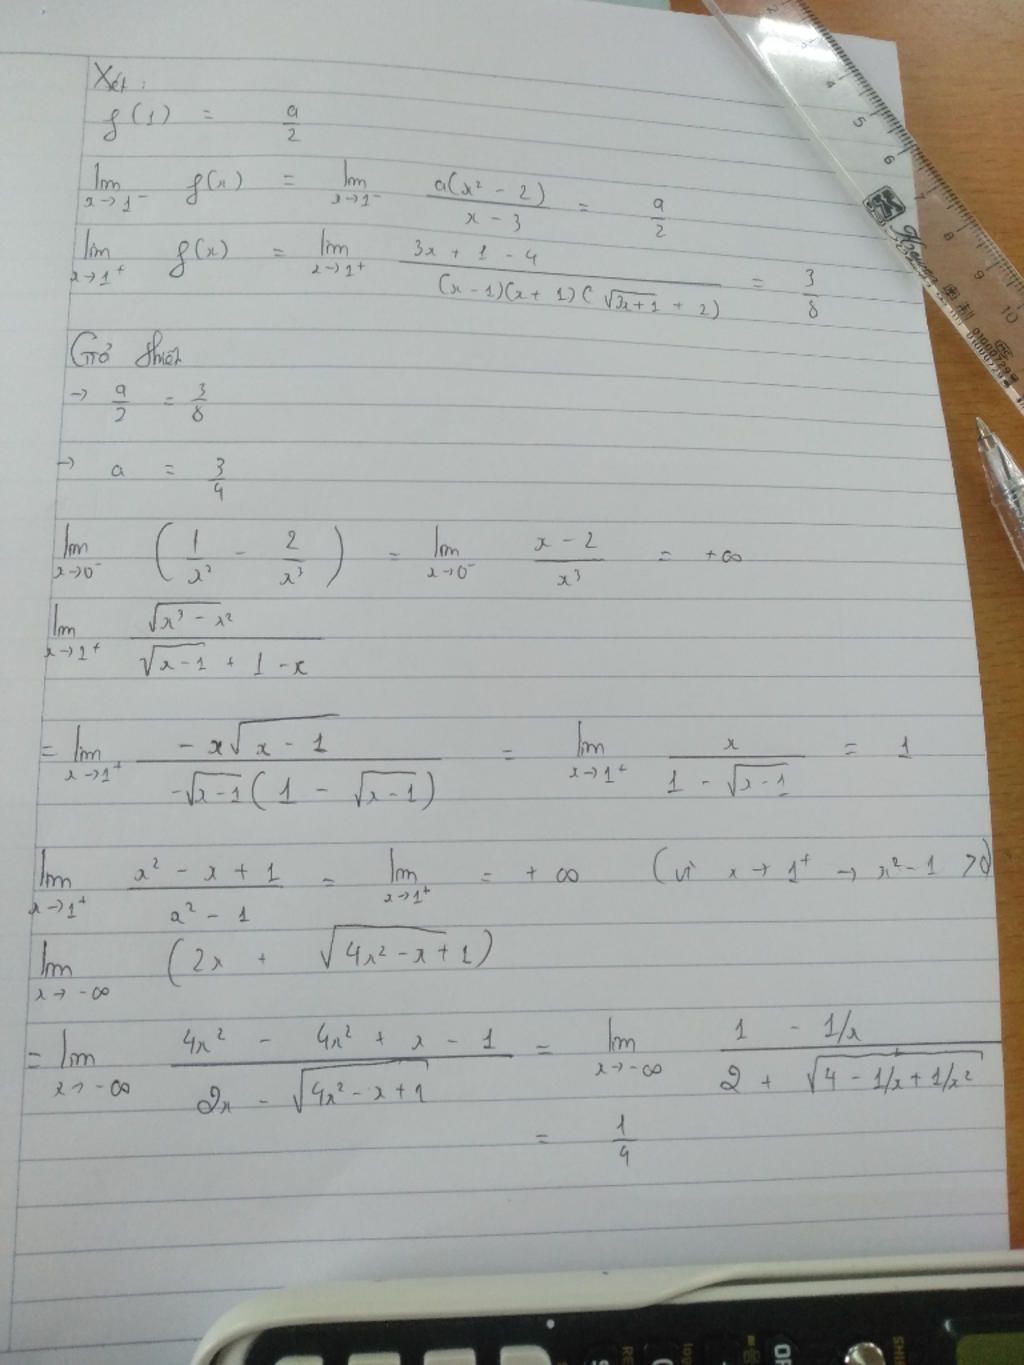 Xét:
f(1) = a/2
lim x→1⁻ f(x) = lim x→1⁻ a(x² - 2)/(x - 3) = a/2
lim x→1⁺ f(x) = lim x→1⁺ (3x + 1 - 4)/((x - 1)(x + 1)(√(3x+1) + 2)) = 3/8
Giả thiết
→ a/2 = 3/8
→ a = 3/4
lim x→0⁻ (1/x² - 2/x³) = lim x→0⁻ (x - 2)/x³ = +∞
lim x→1⁺ √(x³ - x²)/(√(x-1) + 1 - x)
= lim x→1⁺ (-x√(x - 1))/(-√(x-1)(1 - √(x-1))) = lim x→1⁺ x/(1 - √(x-1)) = 1
lim x→1⁺ (x² - x + 1)/(x² - 1) = lim x→1⁺ = +∞ (vì x → 1⁺ → x² - 1 > 0)
lim x→-∞ (2x + √(4x² - x + 1))
= lim x→-∞ (4x² - 4x² + x - 1)/(2x - √(4x² - x + 1)) = lim x→-∞ (1 - 1/x)/(2 + √(4 - 1/x + 1/x²))
= 1/4
4
5
6
7
8
9
10